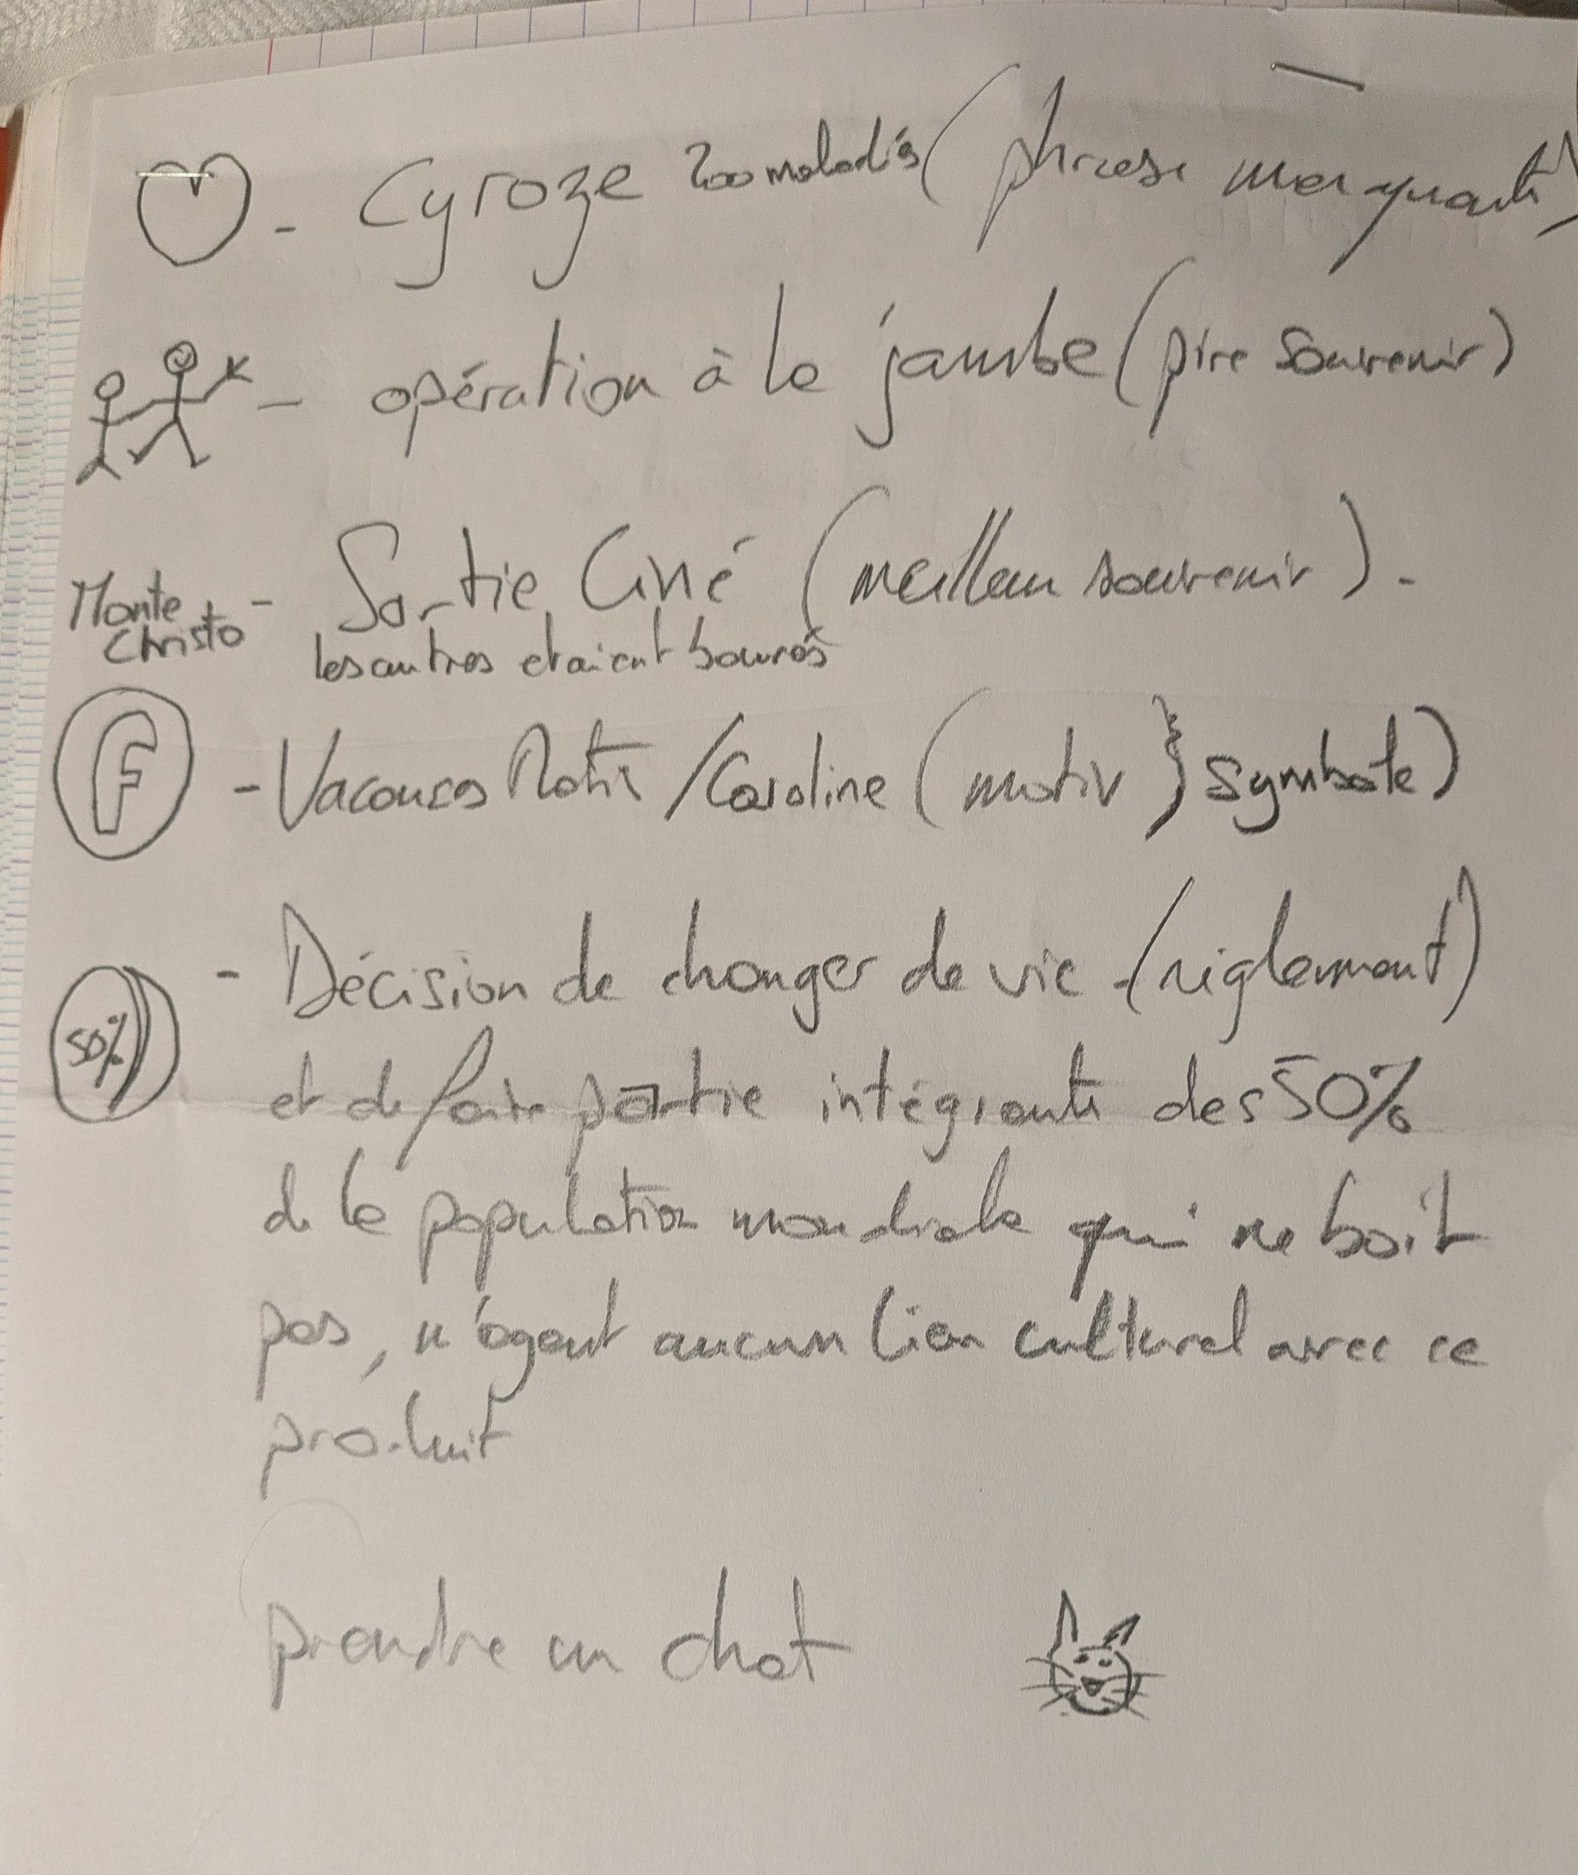 - Cyroze 200 maladies (phrase marquante)
- opération à la jambe (pire souvenir)
Monte Christo - Sortie Ciné (meilleur souvenir).
les autres etaient bourrés
F - Vacances /Caroline (motiv } symbole)
50% - Décision de changer de vie (réglement)
et de faire partie intégrante des 50%
de la population mondiale qui ne boit
pas, n'ayant aucun lien culturel avec ce
produit
prendre un chat